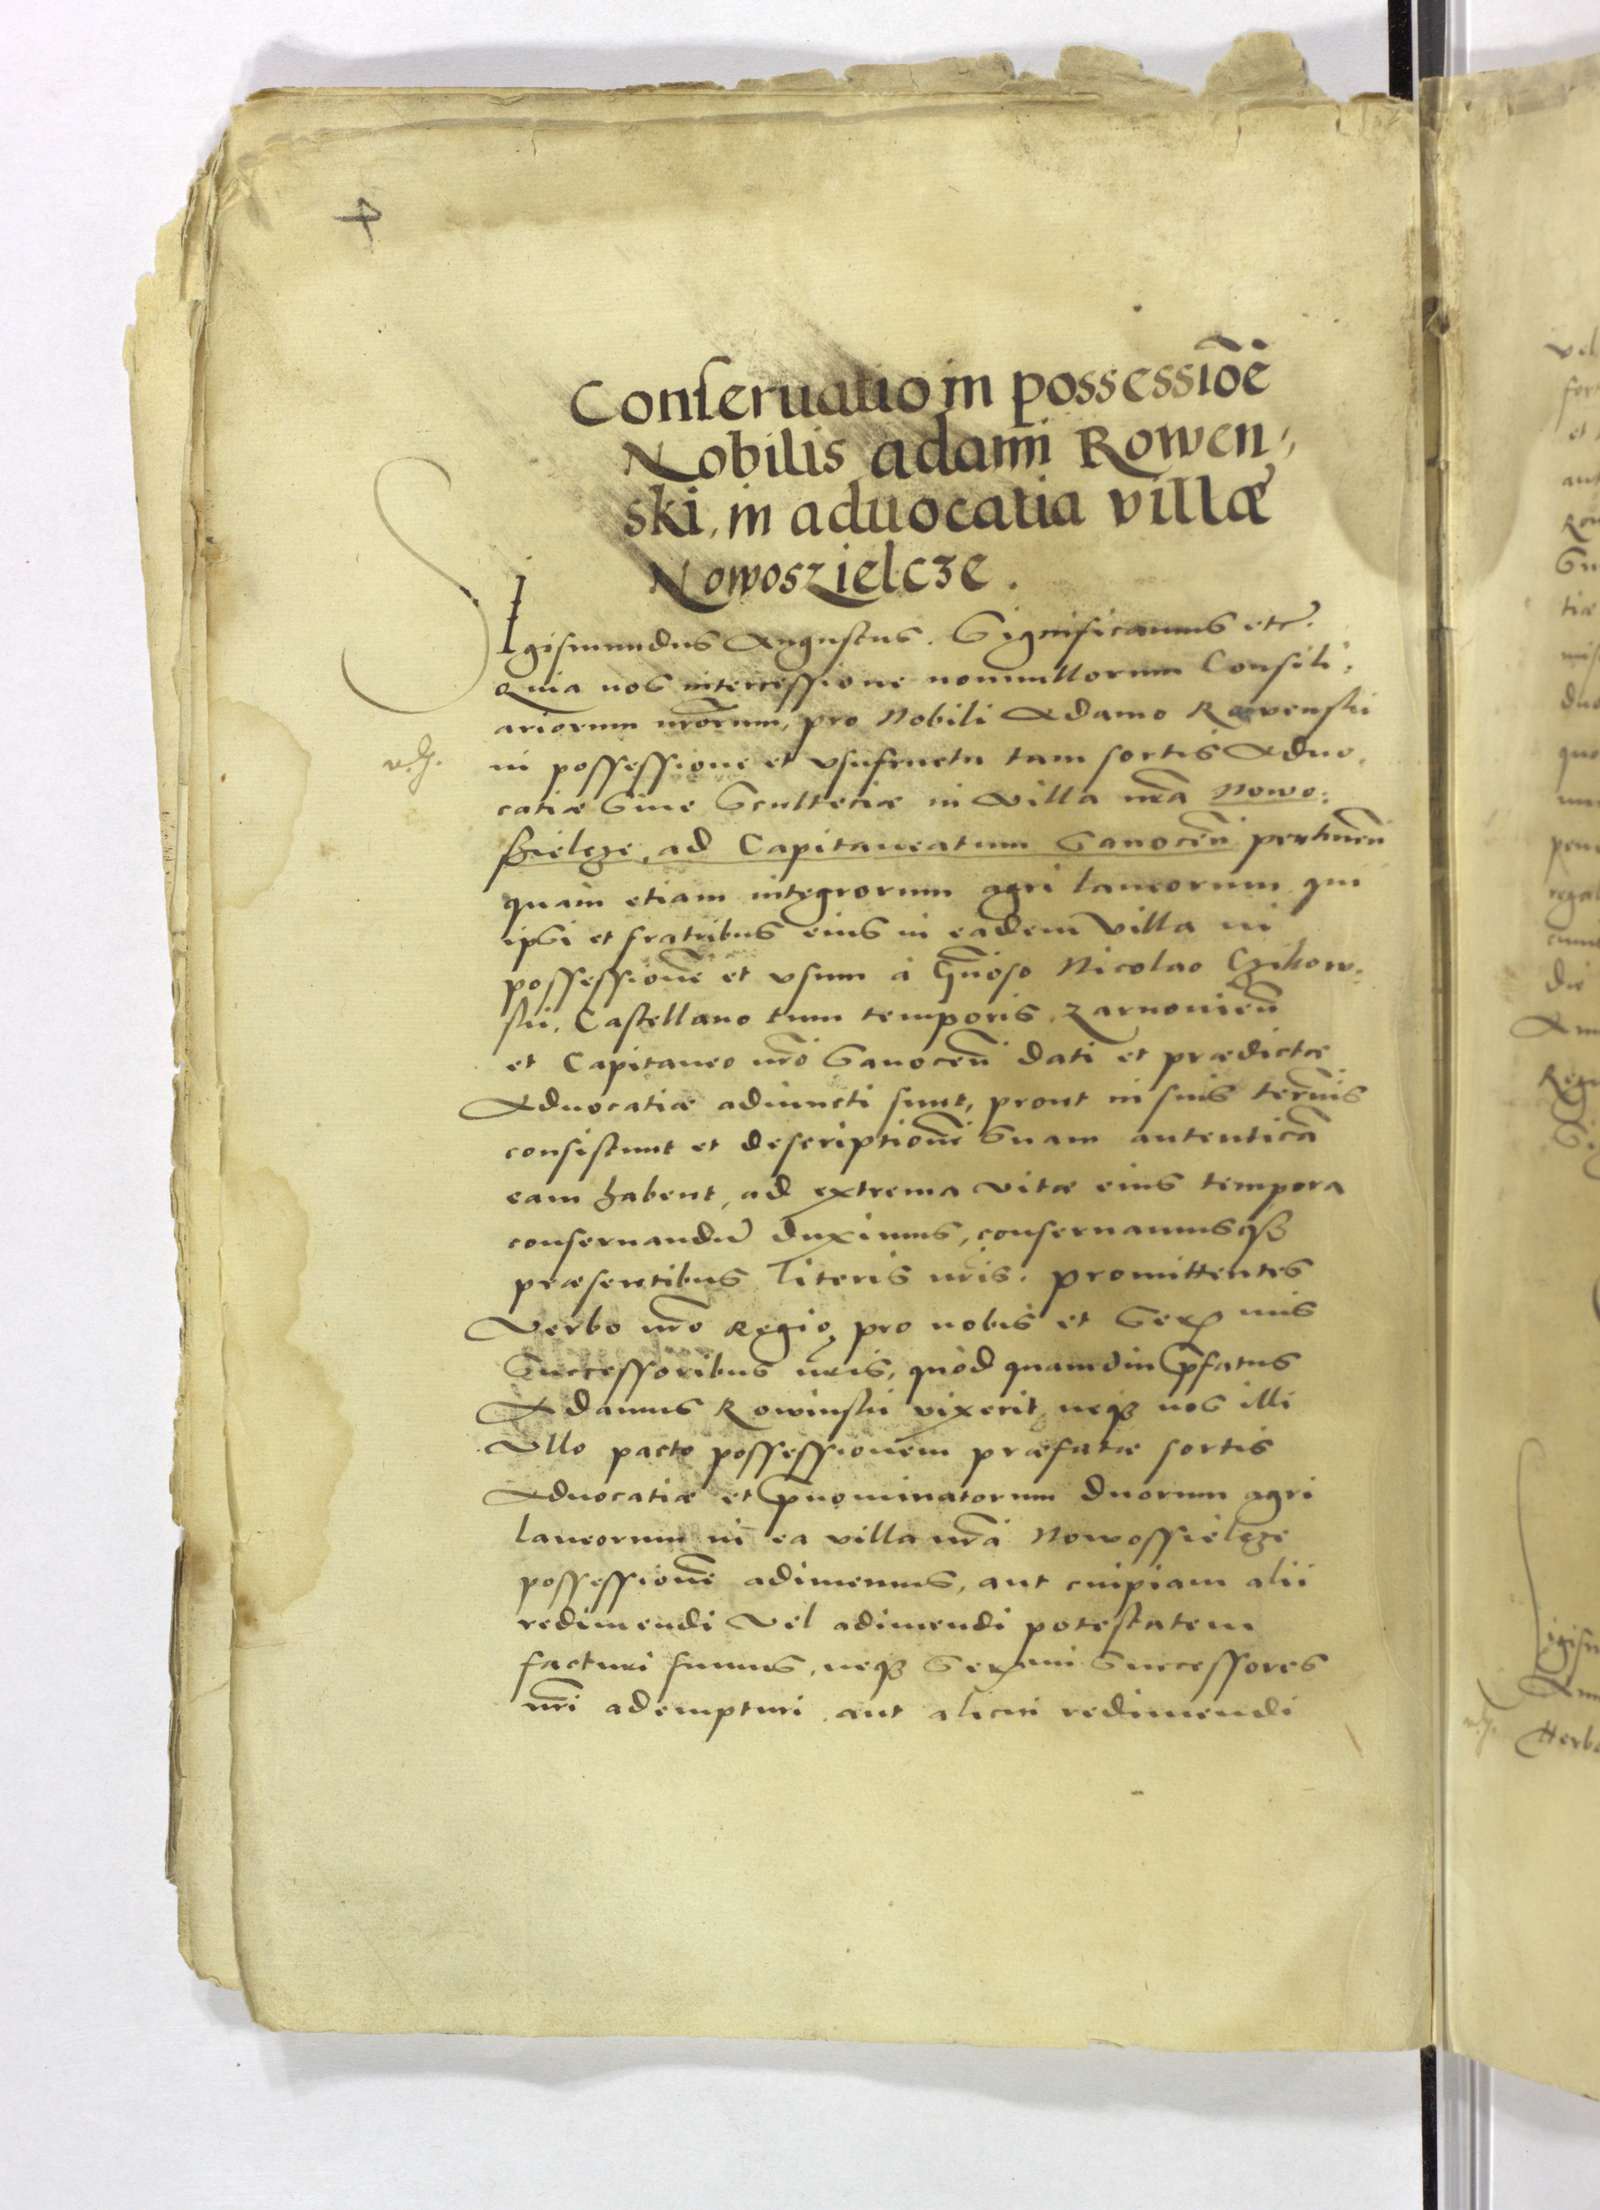 Conseruatio in possessiōē
Nobilis adami Rowen,
ski, in aduocatia villæ
Nowoszielcze.
SIgismundus Augustus. Significamus etc.
Quia nos intercessione nonnullorum Consili,
ariorum nrorum, pro Nobili Adamo Rowenski
in possessione et vsufructu tam sortis Aduo,
catiæ Siue Scultetiæ in Villa nra Nowo,
szielcze, ad Capitaneatum Sanocen̄ pertinen̄
quàm etiam integrorum agri laneorum qui
ipsi et fratribus eius in eadem Villa in
possessionē et vsum à Gnōso Nicolao Czikow,
ski, Castellano tum temporis Zarnouien̄
et Capitaneo nrō Sanocen̄ dati et prædictæ
Aduocatiæ adiuncti sunt, prout in suis termis
consistunt et descriptionē Suam autenticā
eam habent, ad extrema vitæ eius tempora
conseruandū duximus, conseruamusqȝ
præsentibus literis nris. promittentes
Verbo nrō Regio, pro nobis et Serᵐⁱˢ
Successoribus nris, quòd quamdiu p̄fatus
Adamus Rowinski vixerit, neqȝ nos illi
Vllo pacto possessionem præfatæ sortis
Aduocatiæ et p̄nominatorum duorum agri
laneorum in ea villa nrā Nowossielcze
possessionē adimemus, aut cuipiam alii
redimendi Vel adimendi potestatem
facturi sumus, neqȝ Serᵐⁱ Successores
nri adempturi aut alicui redimendi